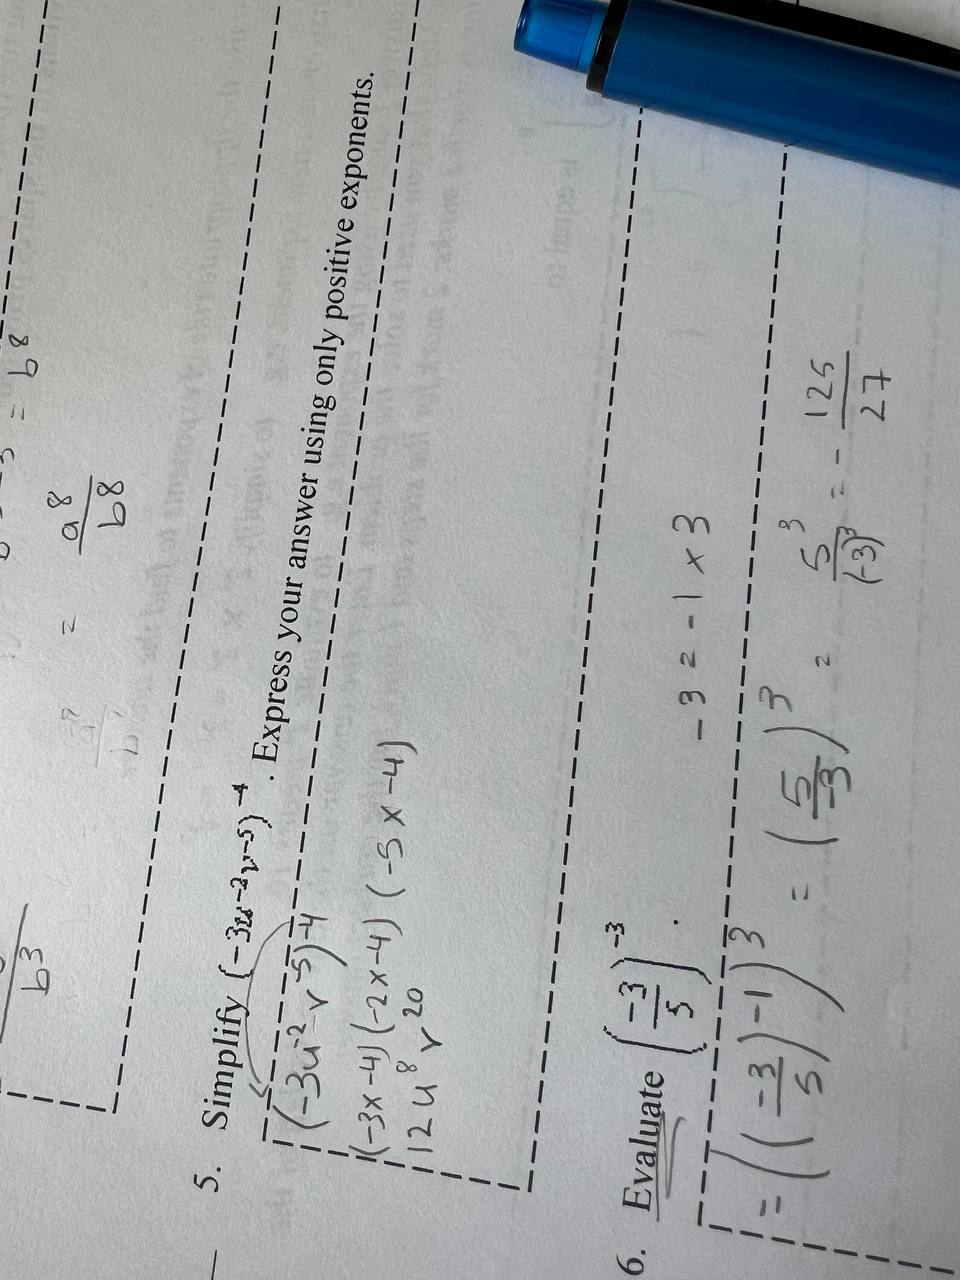 b³
= a⁸/b⁸
= b⁸
5. Simplify (-3u⁻²v⁻⁵)⁻⁴. Express your answer using only positive exponents.
(-3u⁻² v⁵)⁻⁴
(-3x-4)(-2x-4)(-5x-4)
12u⁸v²⁰
6. Evaluate (-3/5)⁻³.
-3 = -1 x 3
= ((-3/5)⁻¹)³ = (5/-3)³ = 5³/(-3)³ = - 125/27